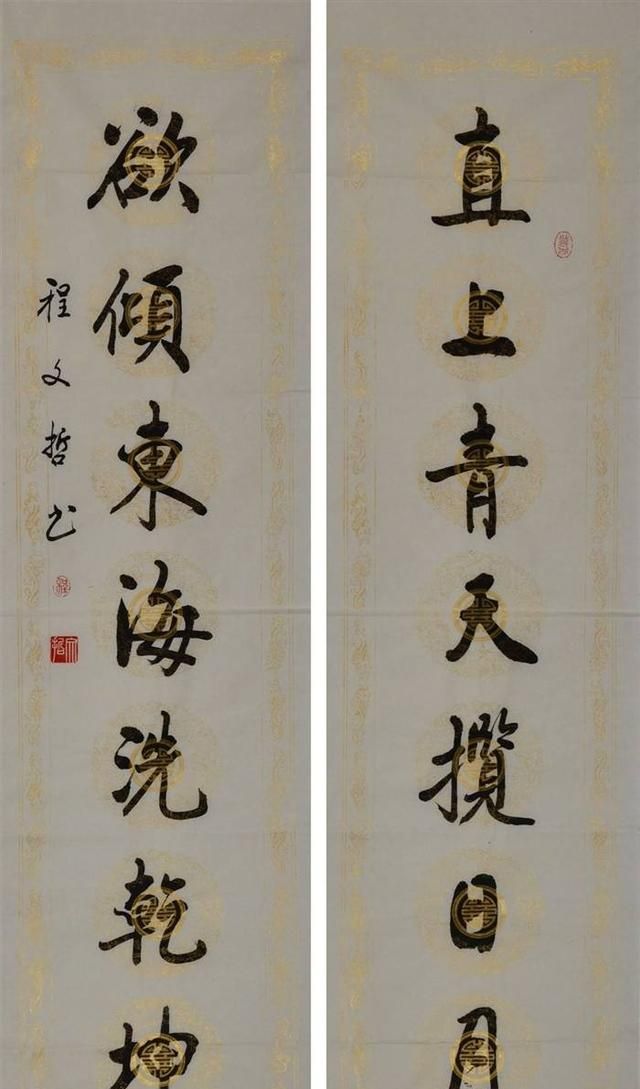 直上青天攬日月
欲傾東海洗乾坤
程文哲书